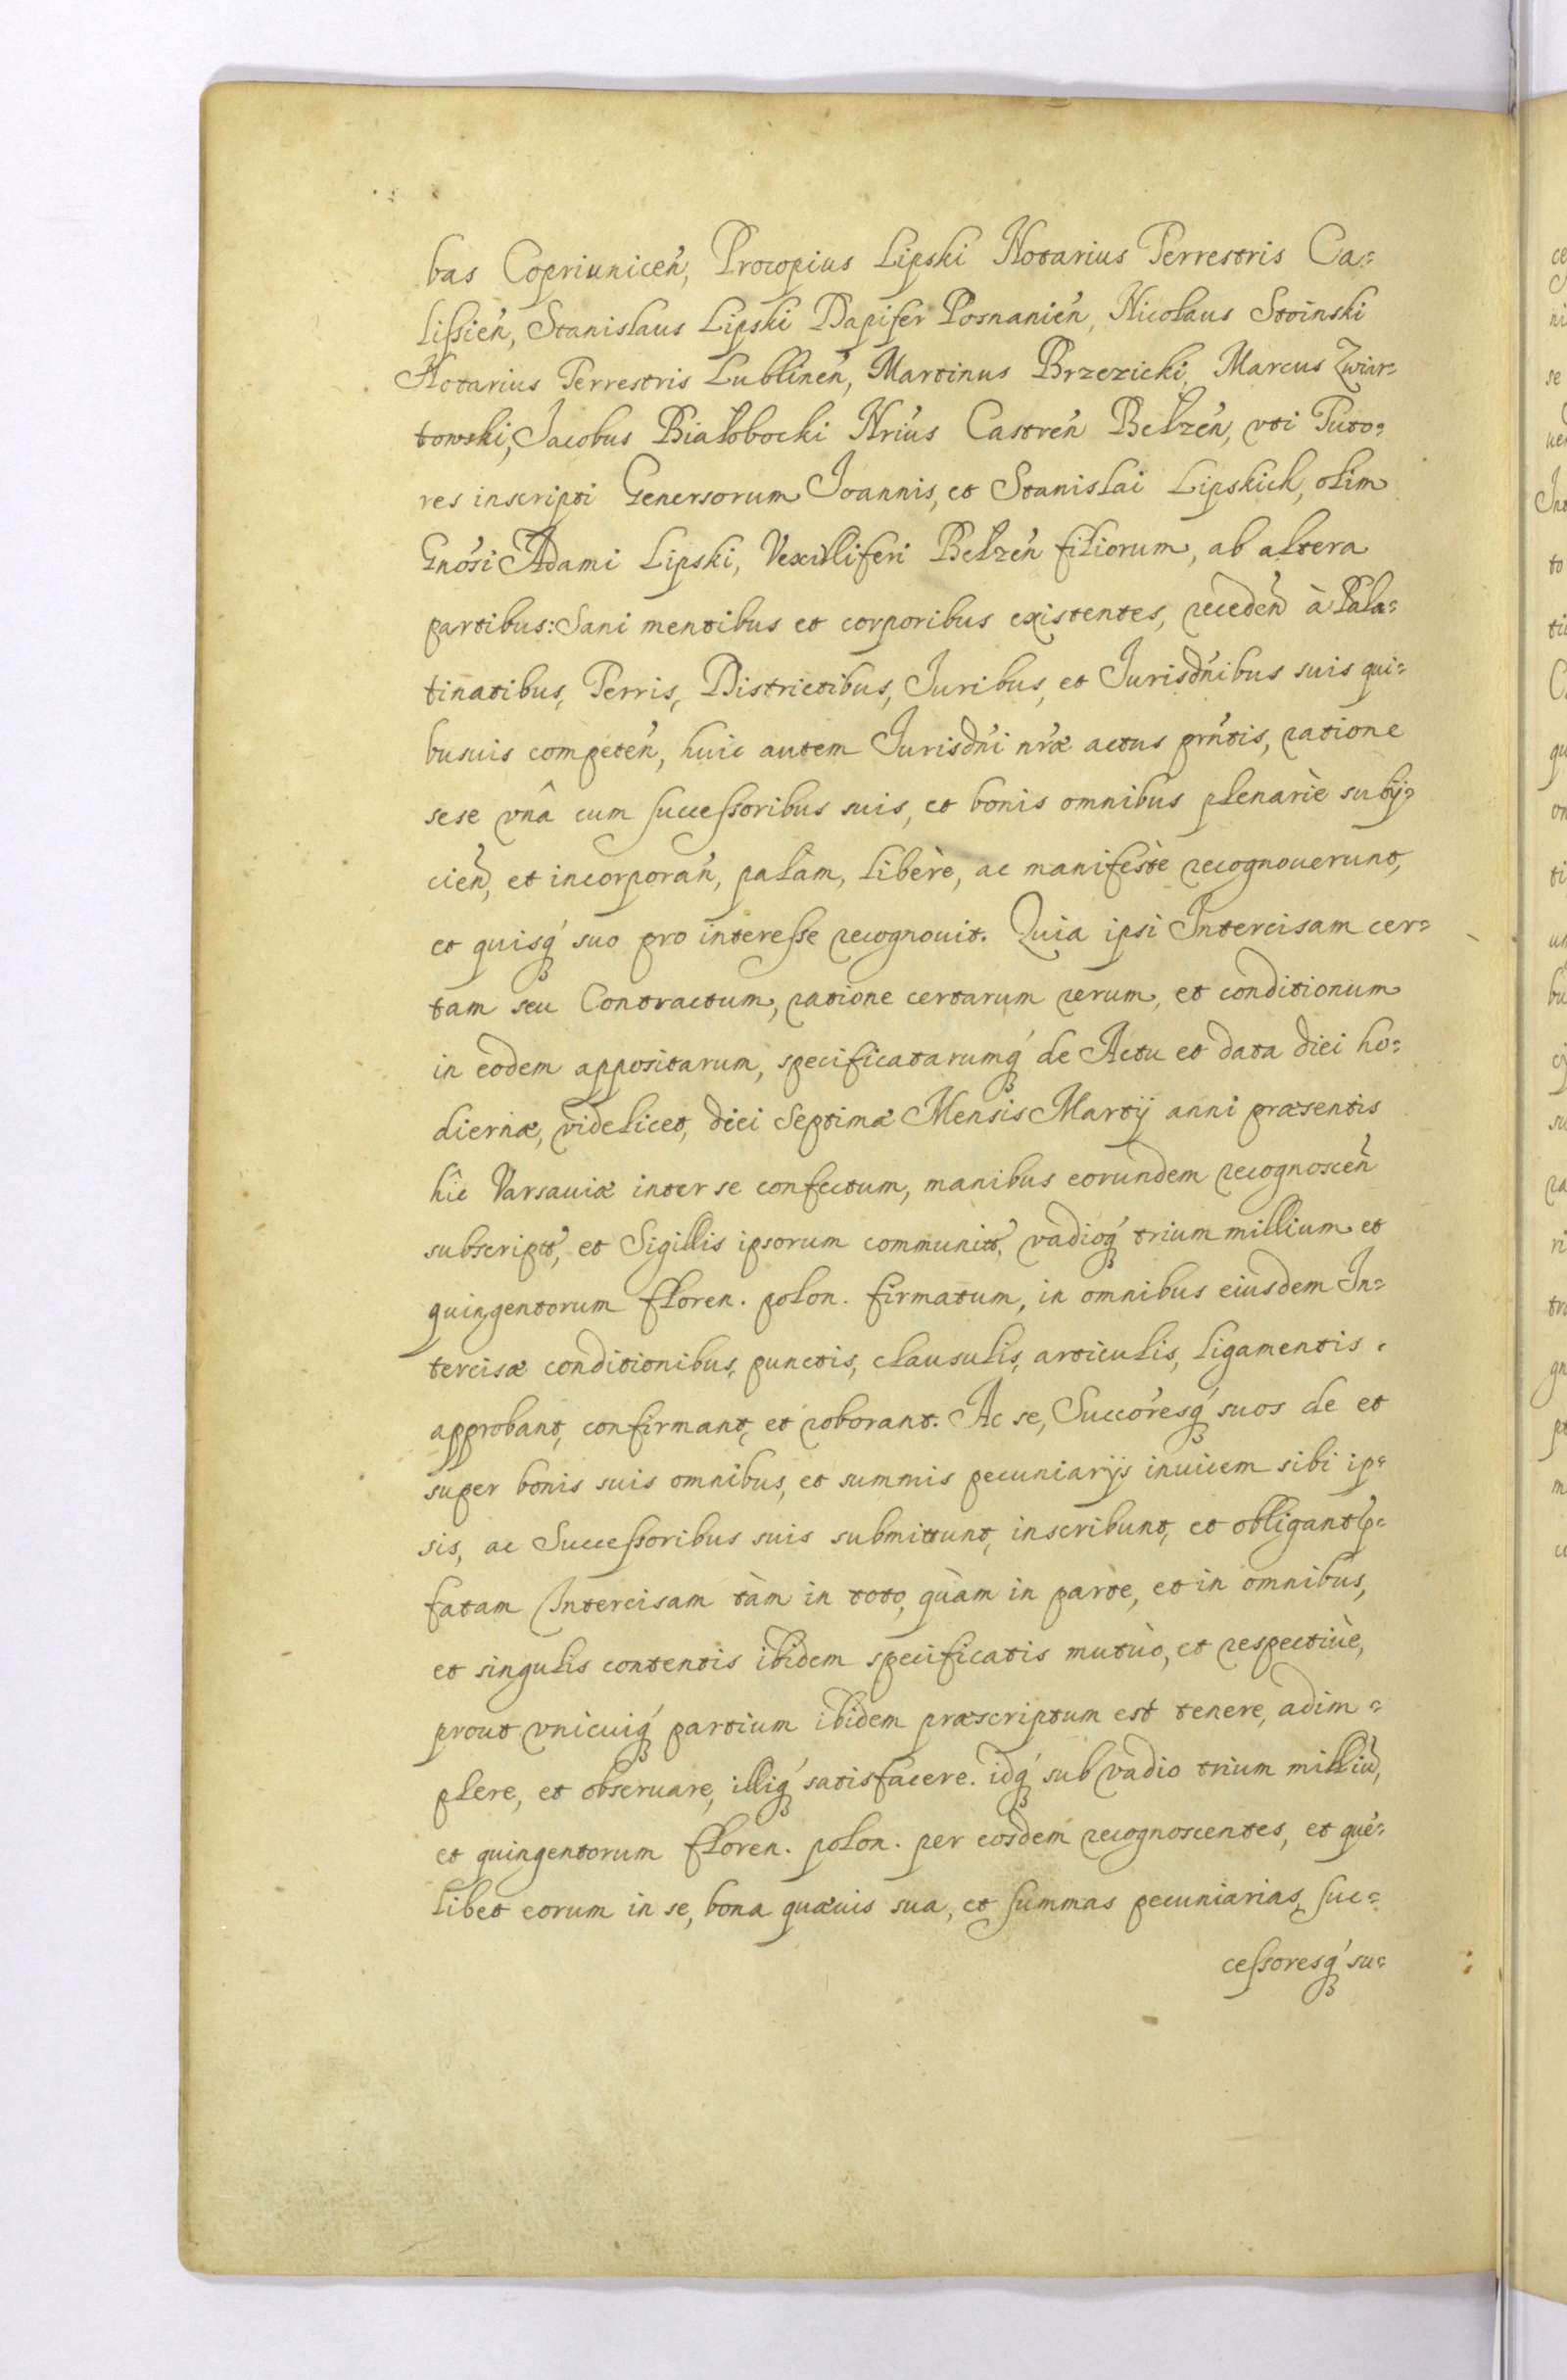 bas Copriunicen̄, Procopius Lipski Notarius Terrestris Ca=
lissien̄, Stanislaus Lipski Dapifer Posnanien̄, Nicolaus Stoinski
Notarius Terrestris Lublinen̄, Martinus Brzezicki, Marcus Zwiar=
towski, Jacobus Białobocki Nrius Castren̄ Bełzen̄, vti Tuto=
res inscripti Generosorum Joannis, et Stanislai Lipskich, olim
Gnosi Adami Lipski, Vexilliferi Bełzen̄ filiorum, ab altera
partibus: Sani mentibus et corporibus existentes, receden̄ à Pala=
tinatibus, Terris, Districtibus, Juribus, et Jurisdn̄ibus suis qui=
busuis competen̄, huic autem Jurisdn̄i nr̄æ actus prn̄tis, ratione
sese vnâ cum successoribus suis, et bonis omnibus plenariè subij=
cien̄, et incorporan̄, palàm, liberè, ac manifestè recognouerunt,
et quisq́ suo pro interesse recognouit. Quia ipsi Intercisam cer=
tam seu Contractum, ratione certarum rerum, et conditionum
in eodem appositarum, specificatarumq́ de Actu et data diei ho=
diernæ, videlicet, diei Septimæ Mensis Martij anni præsentis
hîc Varsauiæ inter se confectum, manibus eorundem recognoscen̄
subscript̄, et Sigillis ipsorum communit̄, vadioq́ trium millium et
quingentorum floren. polon. firmatum, in omnibus eiusdem In=
tercisæ conditionibus, punctis, clausulis, articulis, ligamentis.
approbant, confirmant, et roborant. Ac se, Succoresq́ suos de et
super bonis suis omnibus, et summis pecuniarijs inuicem sibi ip=
sis, ac Successoribus suis submittunt, inscribunt, et obligant p=
fatam Intercisam tàm in toto, quàm in parte, et in omnibus,
et singulis contentis ibidem specificatis mutuò, et respectiuè,
prout vnicuiq́ partium ibidem præscriptum est tenere, adim=
plere, et obseruare, illiq́ satisfacere. idq́ sub vadio trium milliū,
et quingentorum floren. polon. per eosdem recognoscentes, et quē=
libet eorum in se, bona quæuis sua, et summas pecuniarias, suc=
cessoresq́ su=